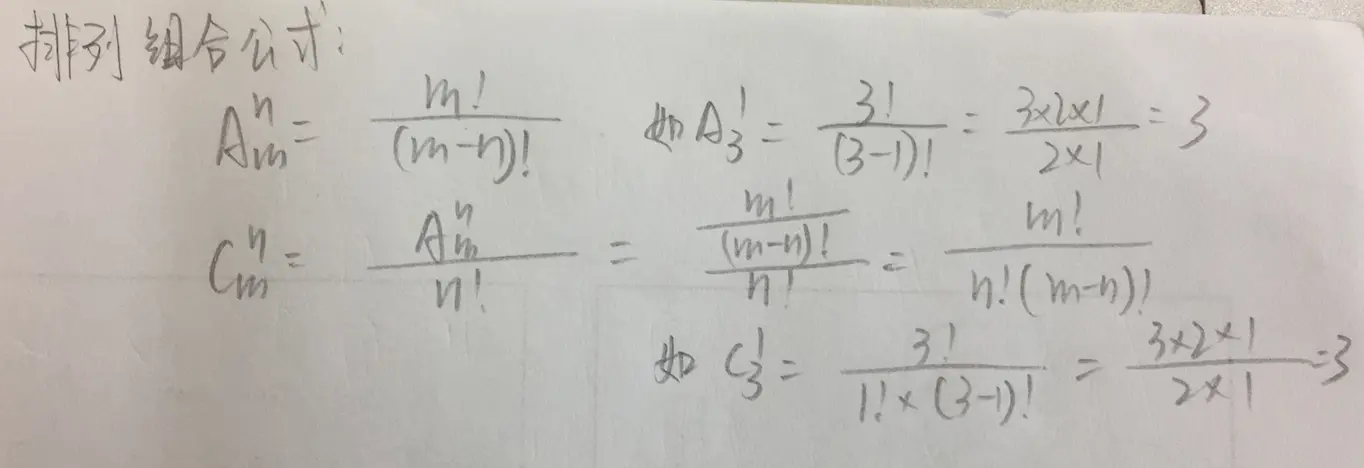 排列组合公式:
A_m^n = \frac{m!}{(m-n)!} 如 A_3^1 = \frac{3!}{(3-1)!} = \frac{3×2×1}{2×1} = 3
C_m^n = \frac{A_m^n}{n!} = \frac{\frac{m!}{(m-n)!}}{n!} = \frac{m!}{n!(m-n)!}
如 C_3^1 = \frac{3!}{1!×(3-1)!} = \frac{3×2×1}{2×1} = 3